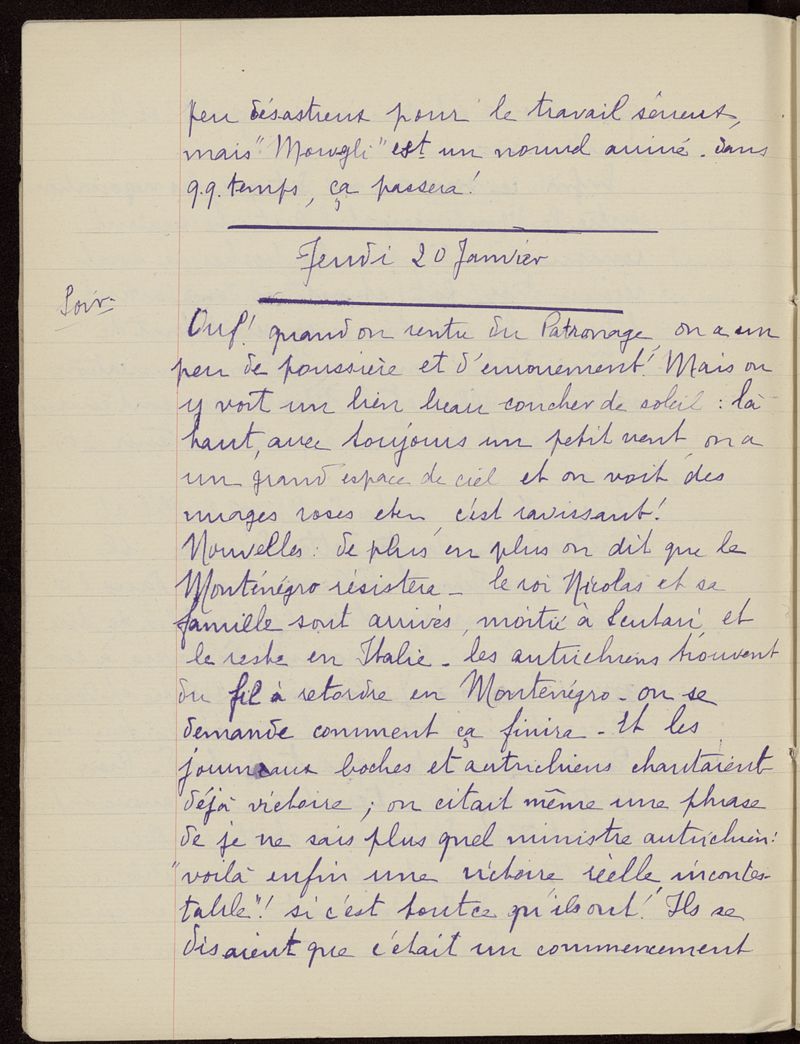 peu désastreux pour le travail sérieux,
mais "Mowgli" est un nouvel arrivé. dans
q.q. temps, ça passera!
Jeudi 20 Janvier
Soir.
Ouf! quand on rentre du Patronage, on a un
peu de poussière et d'enrouement! Mais on
y voit un bien beau coucher de soleil : là
haut, avec toujours un petit vent, on a
un grand espace de ciel et on voit des
nuages roses etc, c'est ravissant!
Nouvelles : de plus en plus on dit que le
Monténégro résistera - le roi Nicolas et sa
famille sont arrivés, moitié à Scutari, et
le reste en Italie - les autrichiens trouvent
du fil à retordre en Monténégro - on se
demande comment ça finira - Et les
journaux boches et autrichiens chantaient
déjà victoire ; on citait même une phrase
de je ne sais plus quel ministre autrichien:
"voilà enfin une victoire réelle, incontes-
table"! si c'est tout ce qu'ils ont! Ils se
disaient que c'était un commencement